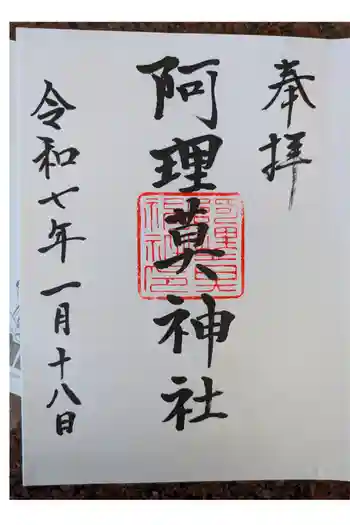 奉拝
阿理莫神社
令和七年一月十八日